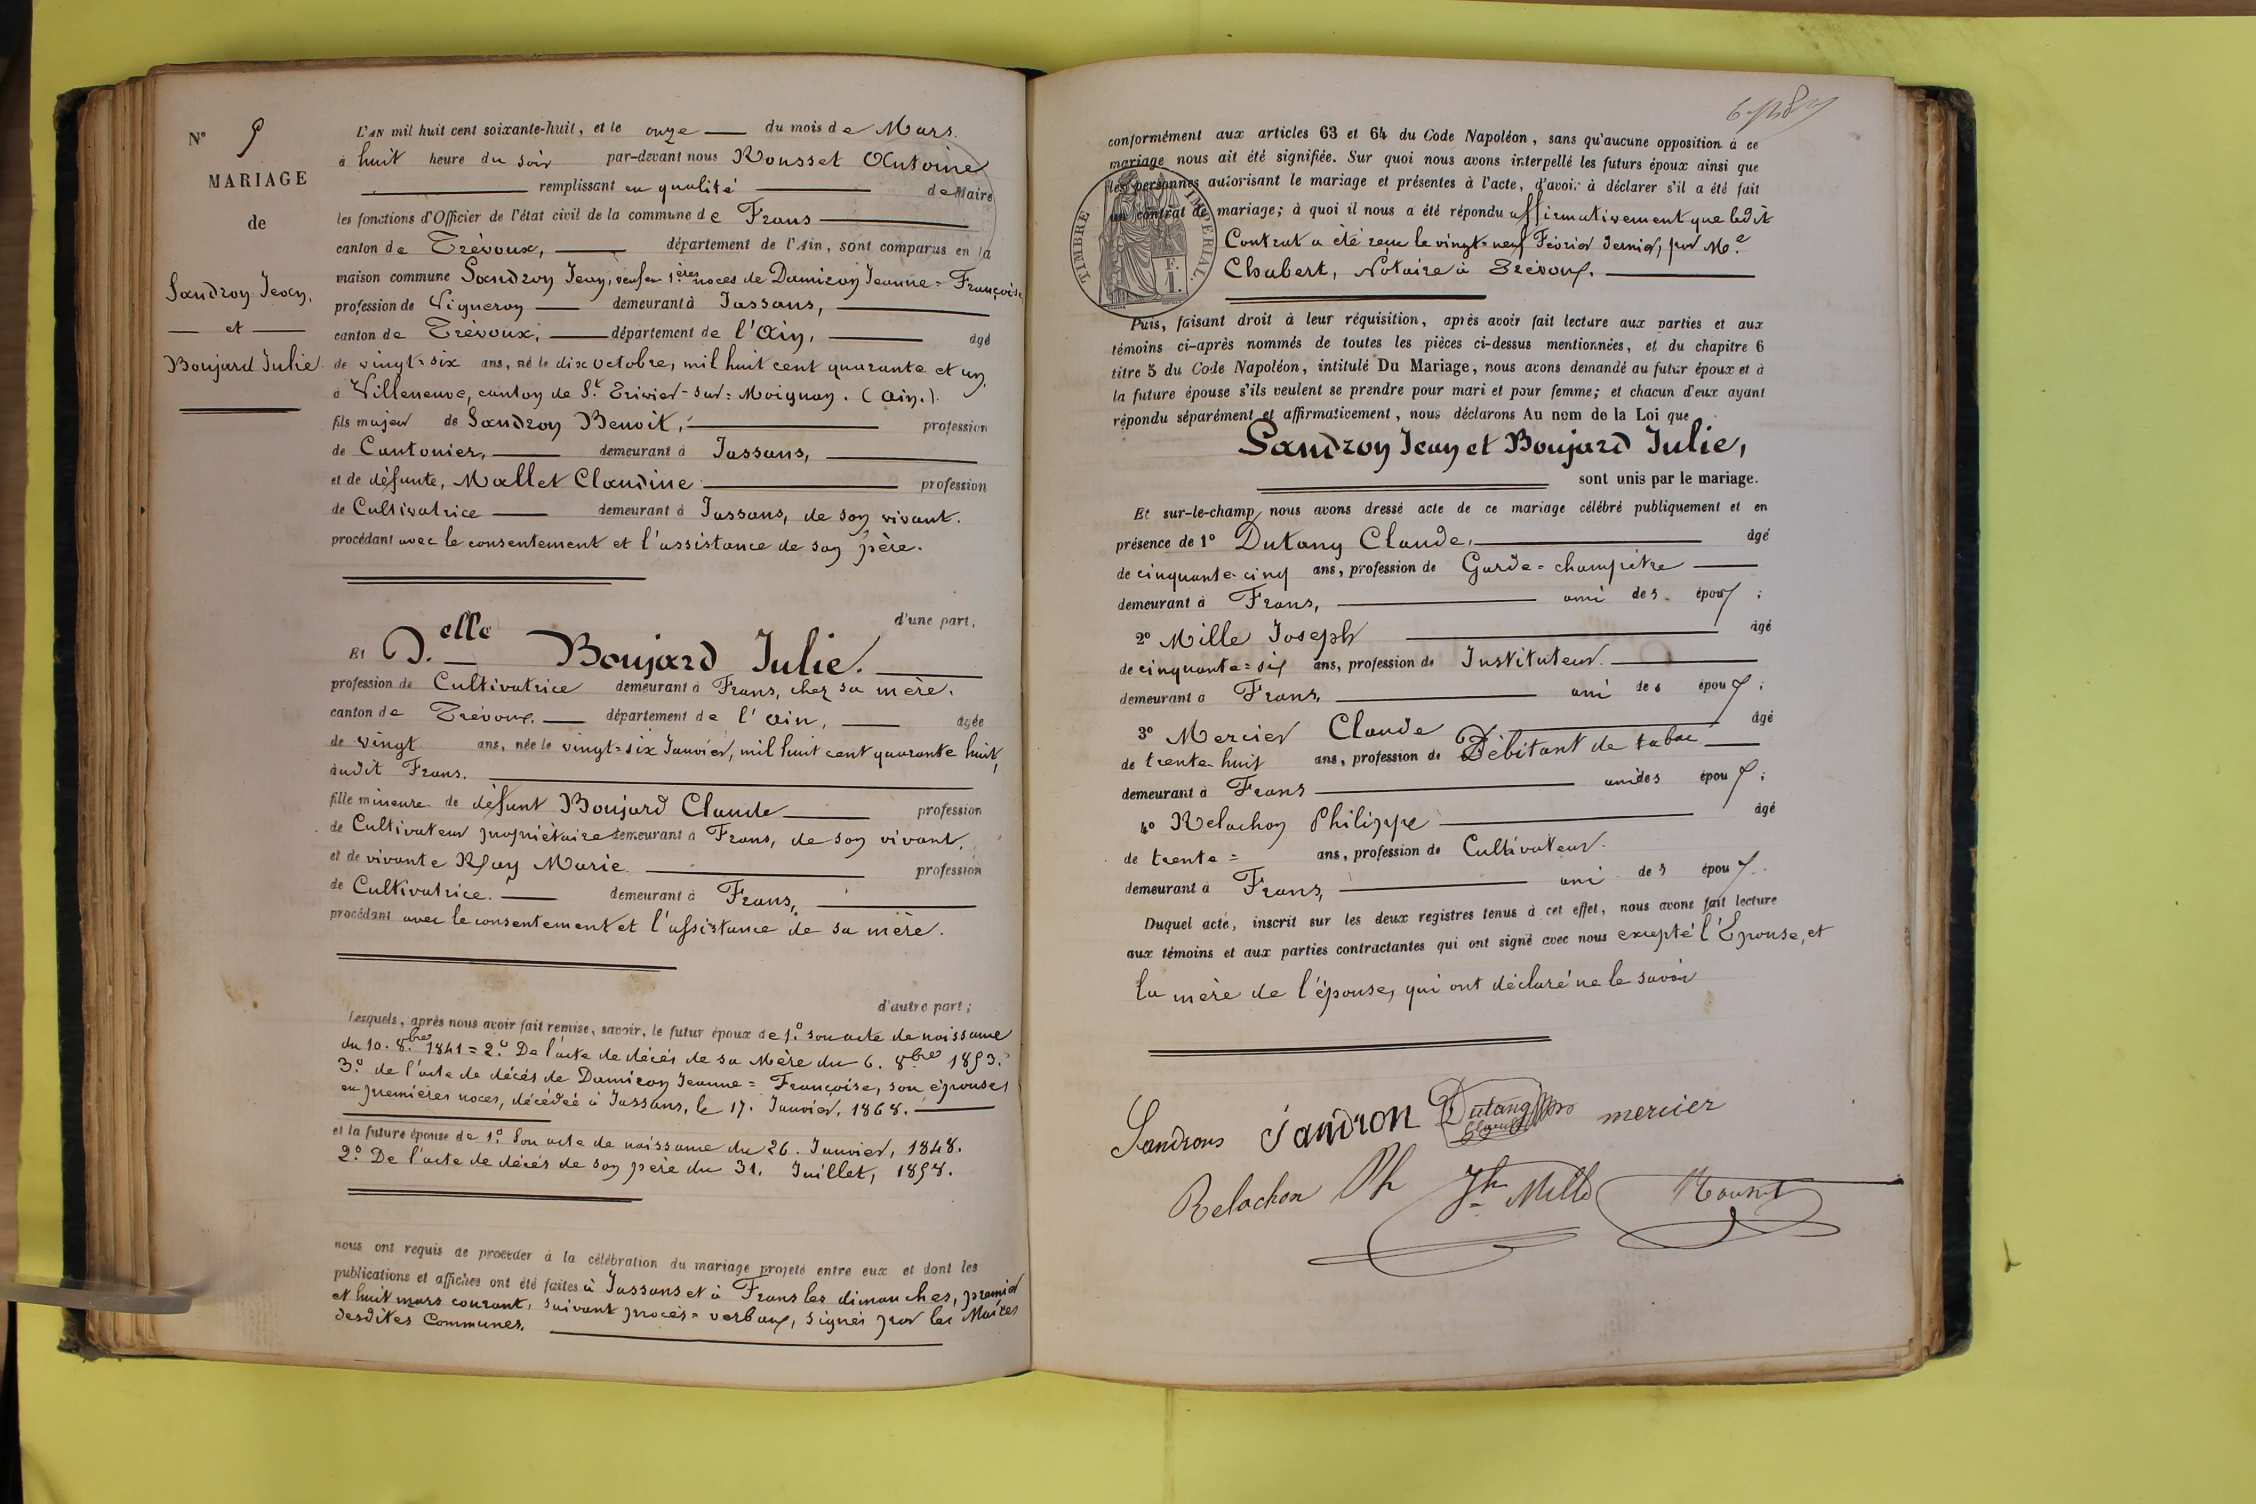 N° 5
MARIAGE
de
Sandron Jean,
et
Boujard Julie.
L'AN mil huit cent soixante-huit, et le onze du mois de Mars.
à huit heure du soir par-devant nous Rousset Antoine
remplissant en qualité de Maire
les fonctions d'Officier de l'état civil de la commune de Frans
canton de Trévoux, département de l'Ain, sont comparus en la
maison commune Sandron Jean, veuf en 1ères noces de Damiron Jeanne=Françoise
profession de Vigneron demeurant à Jassans,
canton de Trévoux, département de l'Ain, âgé
de vingt=six ans, né le dix octobre, mil huit cent quarante et un,
à Villeneuve, canton de St. Trivier=sur=Moignan. (Ain.).
fils majeur de Sandron Benoit, profession
de Cantonier, demeurant à Jassans,
et de défunte, Mallet Claudine profession
de Cultivatrice demeurant à Jassans, de son vivant.
procédant avec le consentement et l'assistance de son père.
d'une part,
Et D.elle Boujard Julie.
profession de Cultivatrice demeurant à Frans, chez sa mère.
canton de Trévoux. département de l'Ain, âgée
de vingt ans, née le vingt=six Janvier, mil huit cent quarante huit,
audit Frans.
fille mineure de défunt Boujard Claude profession
de Cultivateur propriétaire demeurant à Frans, de son vivant.
et de vivante Ray Marie profession
de Cultivatrice. demeurant à Frans,
procédant avec le consentement et l'assistance de sa mère.
d'autre part;
Lesquels, après nous avoir fait remise, savoir, le futur époux de 1.° son acte de naissance
du 10. 8.bre 1841 = 2.° De l'acte de décés de sa Mère du 6. 8bre 1853.
3.° de l'acte de décés de Damiron Jeanne=Françoise, son épouse
en premières noces, décédée à Jassans, le 17. Janvier, 1868.
et la future épouse de 1.° Son acte de naissance du 26. Janvier, 1848.
2.° De l'acte de décés de son père du 31. Juillet, 1858.
nous ont requis de procéder à la célébration du mariage projeté entre eux et dont les
publications et affiches ont été faites à Jassans et à Frans les dimanches, premier
et huit mars courant, suivant procès=verbaux, signés par les Maires
desdites Communes.
conformément aux articles 63 et 64 du Code Napoléon, sans qu'aucune opposition à ce
mariage nous ait été signifiée. Sur quoi nous avons interpellé les futurs époux ainsi que
les personnes autorisant le mariage et présentes à l'acte, d'avoir à déclarer s'il a été fait
un contrat de mariage; à quoi il nous a été répondu affirmativement que ledit
Contrat a été reçu le vingt=neuf Février dernier, par M.e
Chabert, Notaire à Trévoux.
TIMBRE IMPERIAL.
F.
1.
Puis, faisant droit à leur réquisition, après avoir fait lecture aux parties et aux
témoins ci-après nommés de toutes les pièces ci-dessus mentionnées, et du chapitre 6
titre 5 du Code Napoléon, intitulé Du Mariage, nous avons demandé au futur époux et à
la future épouse s'ils veulent se prendre pour mari et pour femme; et chacun d'eux ayant
répondu séparément et affirmativement, nous déclarons Au nom de la Loi que
Sandron Jean et Boujard Julie,
sont unis par le mariage.
Et sur-le-champ nous avons dressé acte de ce mariage célébré publiquement et en
présence de 1° Dutang Claude, âgé
de cinquante-cinq ans, profession de Garde=champêtre
demeurant à Frans, ami des époux ;
2° Mille Joseph âgé
de cinquante=six ans, profession de Instituteur.
demeurant à Frans, ami des époux ;
3° Mercier Claude âgé
de trente-huit ans, profession de Débitant de tabac
demeurant à Frans ami des époux ;
4° Relachon Philippe âgé
de trente= ans, profession de Cultivateur.
demeurant à Frans, ami des époux.
Duquel acte, inscrit sur les deux registres tenus à cet effet, nous avons fait lecture
aux témoins et aux parties contractantes qui ont signé avec nous excepté l'Epouse, et
la mère de l'épouse, qui ont déclaré ne le savoir
Sandrons Sandron Dutang mercier
Relachon Ph Jh Mille Rousset